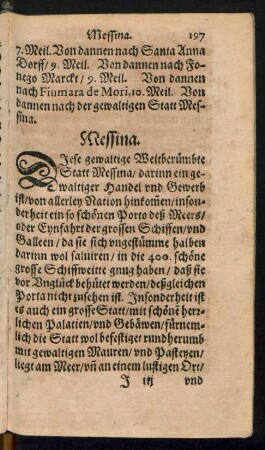 Messina. 197
7. Meil. Von dannen nach Santa Anna
Dorff/ 9. Meil. Von dannen nach Fo-
nego Marckt/ 9. Meil. Von dannen
nach Fiumara de Mori, 10. Meil. Von
dannen nach der gewaltigen Statt Mes-
sina.
Messina.
Diese gewaltige Weitberümbte
Statt Messina/ darinn ein ge-
waltiger Handel vnd Gewerb
ist/ von allerley Nation hinkom̄en/ inson-
derheit ein so schönen Porto deß Meers/
oder Eynfahrt der grossen Schiffen/ vnd
Galleen/ da sie sich vngestümme halben
darinn wol salviren/ in die 400. schöne
grosse Schiffweitte gnug haben/ daß sie
vor Vnglück behütet werden/ deßgleichen
Porta nicht zusehen ist. Insonderheit ist
es auch ein grosse Statt/ mit schönē herr-
lichen Palatien/ vnd Gebäwen/ fürnem-
lich die Statt wol befestiget rundherumb
mit gewaltigen Mauren/ vnd Pasteyen/
liegt am Meer/ vn̄ an einem lustigen Ort/
J iij vnd